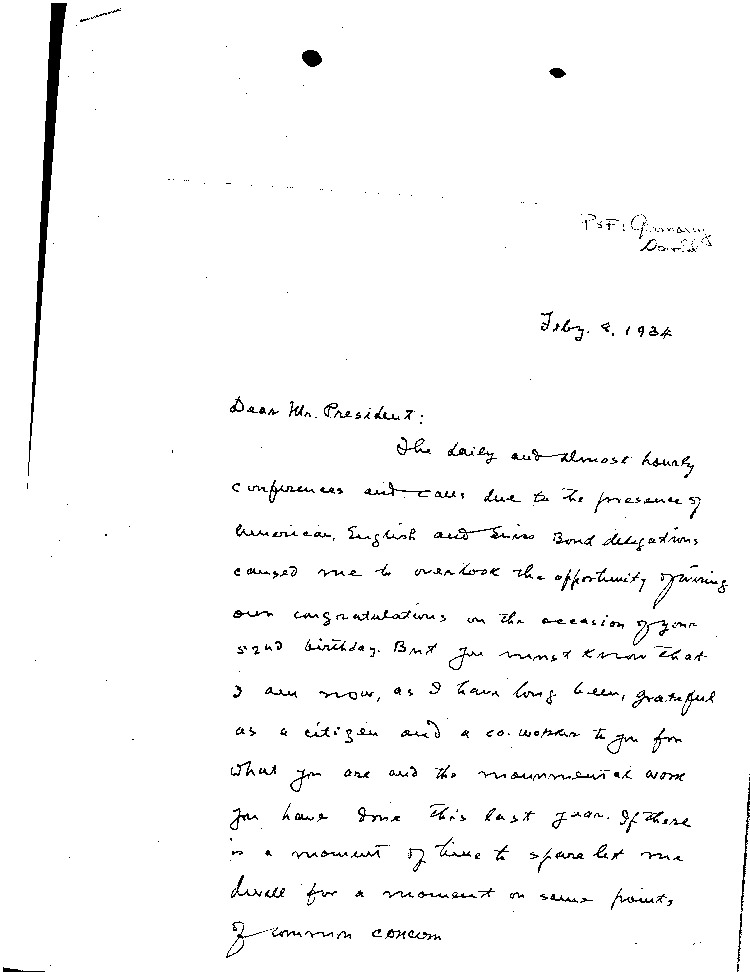 PSF: Germany
Dodd
Feby. 8, 1934
Dear Mr. President:
The daily and almost hourly
conferences and calls due to the presence of
American, English and Swiss Bond delegations
caused me to overlook the opportunity of wiring
our congratulations on the occasion of your
52nd birthday. But you must know that
I am now, as I have long been, grateful
as a citizen and a co-worker to you for
what you are and the monumental work
you have done this last year. If there
is a moment of time to spare let me
dwell for a moment on some points
of common concern